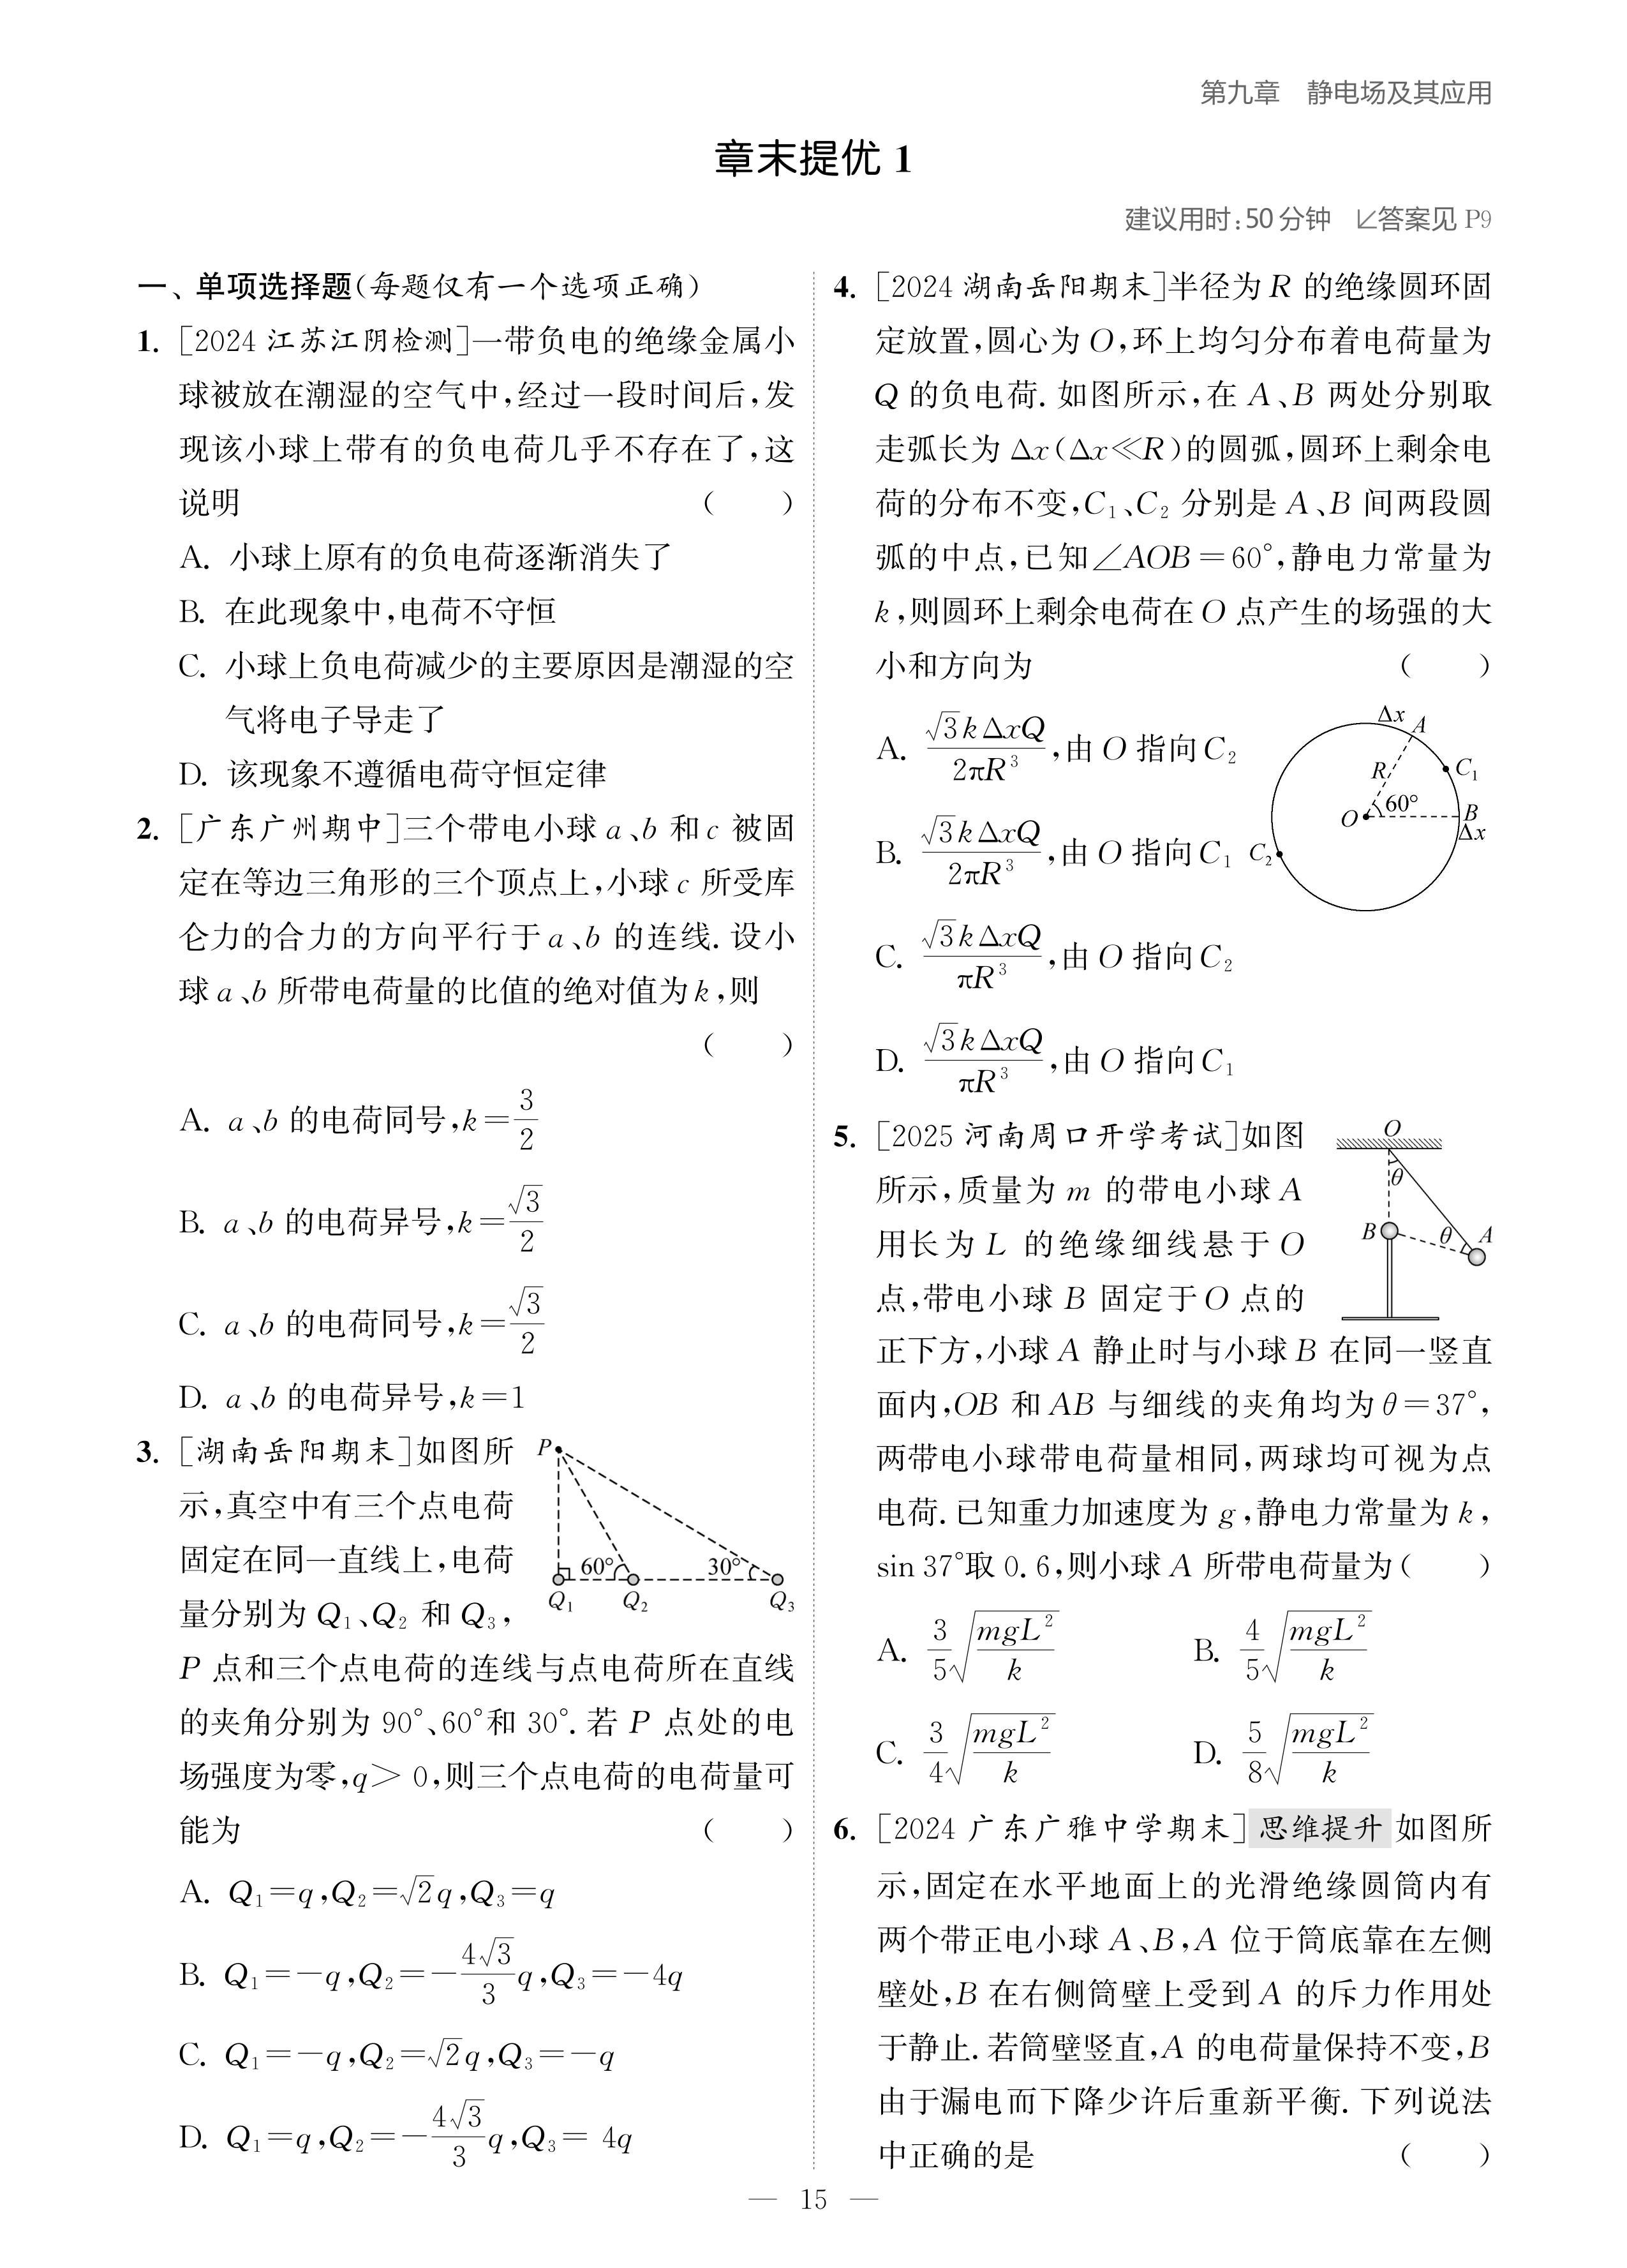 第九章 静电场及其应用
章末提优 1
建议用时:50分钟 答案见 P9
一、单项选择题(每题仅有一个选项正确)
1. [2024 江苏江阴检测]一带负电的绝缘金属小
球被放在潮湿的空气中,经过一段时间后,发
现该小球上带有的负电荷几乎不存在了,这
说明 ( )
A. 小球上原有的负电荷逐渐消失了
B. 在此现象中,电荷不守恒
C. 小球上负电荷减少的主要原因是潮湿的空
气将电子导走了
D. 该现象不遵循电荷守恒定律
2. [广东广州期中]三个带电小球 a、b 和 c 被固
定在等边三角形的三个顶点上,小球 c 所受库
仑力的合力的方向平行于 a、b 的连线. 设小
球 a、b 所带电荷量的比值的绝对值为 k,则
( )
A. a、b 的电荷同号,k=3/2
B. a、b 的电荷异号,k=√3/2
C. a、b 的电荷同号,k=√3/2
D. a、b 的电荷异号,k=1
3. [湖南岳阳期末]如图所
示,真空中有三个点电荷
固定在同一直线上,电荷
量分别为 Q₁、Q₂ 和 Q₃,
P 点和三个点电荷的连线与点电荷所在直线
的夹角分别为 90°、60°和 30°. 若 P 点处的电
场强度为零,q＞0,则三个点电荷的电荷量可
能为 ( )
P
60°
30°
Q₁
Q₂
Q₃
A. Q₁=q,Q₂=√2q,Q₃=q
B. Q₁=-q,Q₂=-4√3/3 q,Q₃=-4q
C. Q₁=-q,Q₂=√2q,Q₃=-q
D. Q₁=q,Q₂=-4√3/3 q,Q₃= 4q
4. [2024 湖南岳阳期末]半径为 R 的绝缘圆环固
定放置,圆心为 O,环上均匀分布着电荷量为
Q 的负电荷. 如图所示,在 A、B 两处分别取
走弧长为 Δx(Δx≪R)的圆弧,圆环上剩余电
荷的分布不变,C₁、C₂ 分别是 A、B 间两段圆
弧的中点,已知∠AOB=60°,静电力常量为
k,则圆环上剩余电荷在 O 点产生的场强的大
小和方向为 ( )
A. √3kΔxQ/2πR³,由 O 指向 C₂
B. √3kΔxQ/2πR³,由 O 指向 C₁
C. √3kΔxQ/πR³,由 O 指向 C₂
D. √3kΔxQ/πR³,由 O 指向 C₁
Δx
A
R
C₁
60°
O
B
Δx
C₂
5. [2025 河南周口开学考试]如图
所示,质量为 m 的带电小球 A
用长为 L 的绝缘细线悬于 O
点,带电小球 B 固定于 O 点的
正下方,小球 A 静止时与小球 B 在同一竖直
面内,OB 和 AB 与细线的夹角均为 θ=37°,
两带电小球带电荷量相同,两球均可视为点
电荷.已知重力加速度为 g,静电力常量为 k,
sin 37°取 0.6,则小球 A 所带电荷量为( )
O
θ
B
θ
A
A. 3/5 √(mgL²/k) B. 4/5 √(mgL²/k)
C. 3/4 √(mgL²/k) D. 5/8 √(mgL²/k)
6. [2024 广东广雅中学期末] 思维提升 如图所
示,固定在水平地面上的光滑绝缘圆筒内有
两个带正电小球 A、B,A 位于筒底靠在左侧
壁处,B 在右侧筒壁上受到 A 的斥力作用处
于静止.若筒壁竖直,A 的电荷量保持不变,B
由于漏电而下降少许后重新平衡. 下列说法
中正确的是 ( )
— 15 —